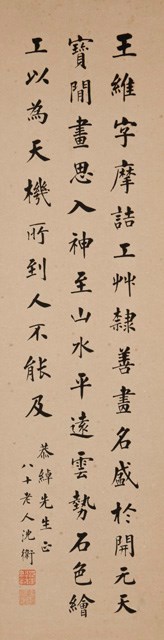 王維字摩詰工艸隸善畫名盛於開元天
寶閒畫思入神至山水平遠雲勢石色繪
工以為天機所到人不能及
恭綽先生正
八十老人沈衛